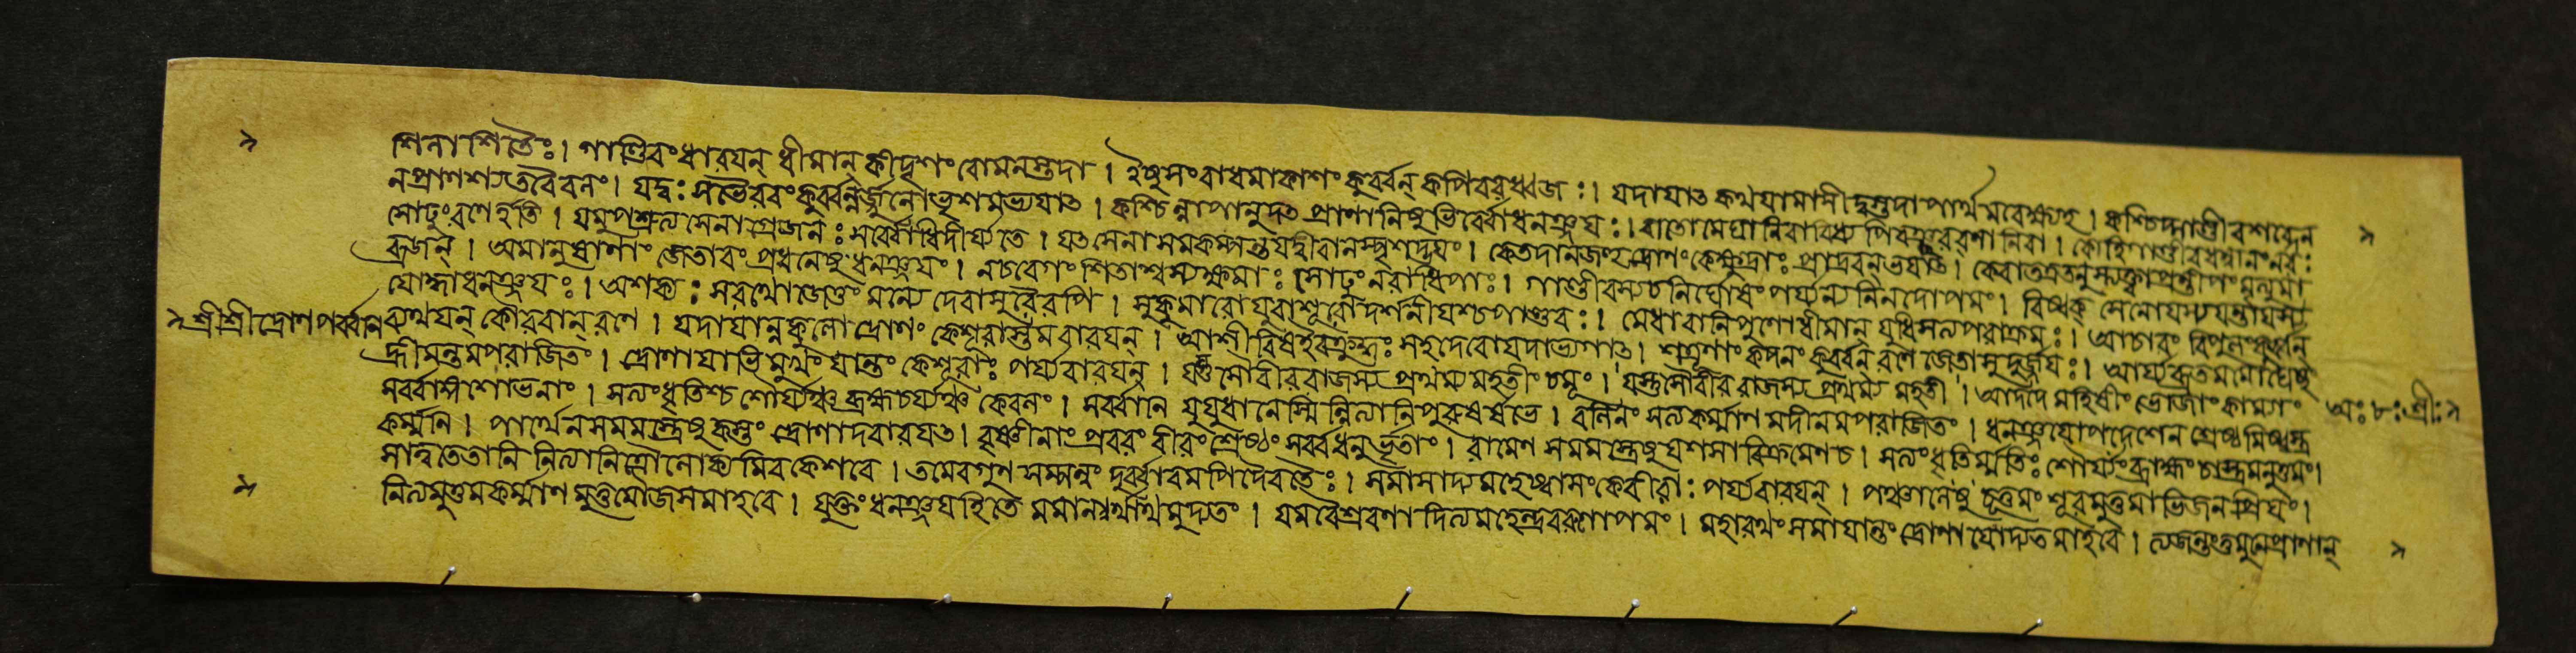 শিলাশিতৈঃ। গাণ্ডিবং ধারযন্ ধীমান্ কীদৃশং বোমনস্তদা । ইষুসংবাধমাকাশং কুর্ব্বন্ কপিবরধ্বজঃ। যদাযাৎ কথযামাসীদ্বস্তদা পার্থমবেক্ষ্যহ । কশ্চিদ্গাণ্ডীবশব্দেন
নপ্রাণশ্যতবৈ বলং। যদ্বঃ সভৈরবং কুর্ব্বন্নর্জ্জুনোভৃশমভ্যযাৎ । কশ্চিন্নাপানুদৎ প্রাণানিষুভির্ব্বোধনঞ্জযঃ। বাতোমেঘানিবাবিধ্য কোহিগাণ্ডীবধন্বানংনরঃ
সোঢুংরণেহতি । যমুপশ্রুত্য সেনাগ্রেজনঃ সর্ব্বোবিদীর্য্যতে । যৎসেনাসমকম্পন্ত যদ্বীরানস্পৃশদ্ভযং। কেতদানজহুর্দ্রোণং কেক্ষুদ্রাঃ প্রাদ্রবনভযাৎ। কেবাতত্রতনুস্ত্যক্ত্বা প্রতীপং মৃত্যুমা
ব্রজন্ । অমানুষাণাং জেতারং প্রধনেষুধনঞ্জযং। নচবেগং শিতাশ্বস্যক্ষমাঃ সোঢুং নরাধিপাঃ। গাণ্ডীবস্যচনির্ঘোষং পর্য্যন্যনিনদোপমং। বিষ্বক্ সেনোযস্যযন্তাযস্য
যোদ্ধাধনঞ্জযঃ। অশক্যঃ সরথোজেতুং মন্যে দেবাসুরৈরপি । সুকুমারোযুবাশূরো দর্শনীযশ্চপাণ্ডবঃ। মেধাবানিপুণোধীমান্ যুধিসত্যপরাক্রমঃ। আচারং বিপুলংকুর্ব্বন্
শ্রীশ্রীদ্রোণপর্ব্বনি ব্যথযন্ কৌরবান্ রণে । যদাযান্নকুলো দ্রোণং কেশূরাস্তমবারযন্ । আশীবিষইবক্রুদ্ধঃ সহদেবোযদাভ্যগাৎ। শত্রূণাং কদনং কুর্ব্বন্ রণে জেতাসুদুর্জ্জযঃ। আর্য্যব্রতমমোঘেষুং
হ্রীমন্তমপরাজিতং। দ্রোণাযাভিমুখং যান্তং কেশূরাঃ পর্য্যবারযন্ । যস্তুসৌবীররাজস্য প্রথম্য মহতীং চমূং। যস্তুসৌবীররাজস্য প্রথম্য মহতী । আদদে মহিষীং ভোজাং কাম্যাং
সর্ব্বাঙ্গশোভনাং। সত্যংধৃতিশ্চ শৌর্য্যঞ্চ ব্রহ্মচর্য্যঞ্চ কেবলং। সর্ব্বানি যুযুধানেস্মিন্নিত্যানিপুরুষর্ষভে । বলিনং সত্যকর্ম্মাণমদীনমপরাজিতং। অঃ ৮ঃ শ্রীঃ
কর্ম্মনি । পার্থেনসমমস্ত্রেষুকস্তুং দ্রোণাদবারযৎ। বৃষ্ণীনাং প্রবরং বীরং শ্রেষ্ঠং সর্ব্বধনুর্ভৃতাং। রামেণ সমমস্ত্রেষুযশসাবিক্রমেণচ । সত্যংধৃতির্ম্মতিঃ শৌর্য্যং ব্রাহ্মং চাস্ত্রমনুত্তমং।
সাত্বতেতানি নিত্যানি ত্রৈলোক্যমিবকেশবে । তমেবগুণসম্পন্নং দুর্ব্বারমপিদৈবতৈঃ। সমাসাদ্যমহেষ্বাসং কেবীরাঃ পর্য্যবারযন্ । পঞ্চালেষুচূত্তমং শূরমুত্তমাভিজনপ্রিযং।
নিত্যমুত্তমকর্ম্মাণমুত্তমৌজসমাহবে । যুক্তং ধনঞ্জযহিতে মমানর্থার্থমুদ্যতং । যমবৈশ্রবণাদিত্যমহেন্দ্রবরুণোপমং। মহারথংসমাযান্তং দ্রোণাযোদ্যতমাহবে । ত্যজন্তংতুমুলেপ্রাণান্